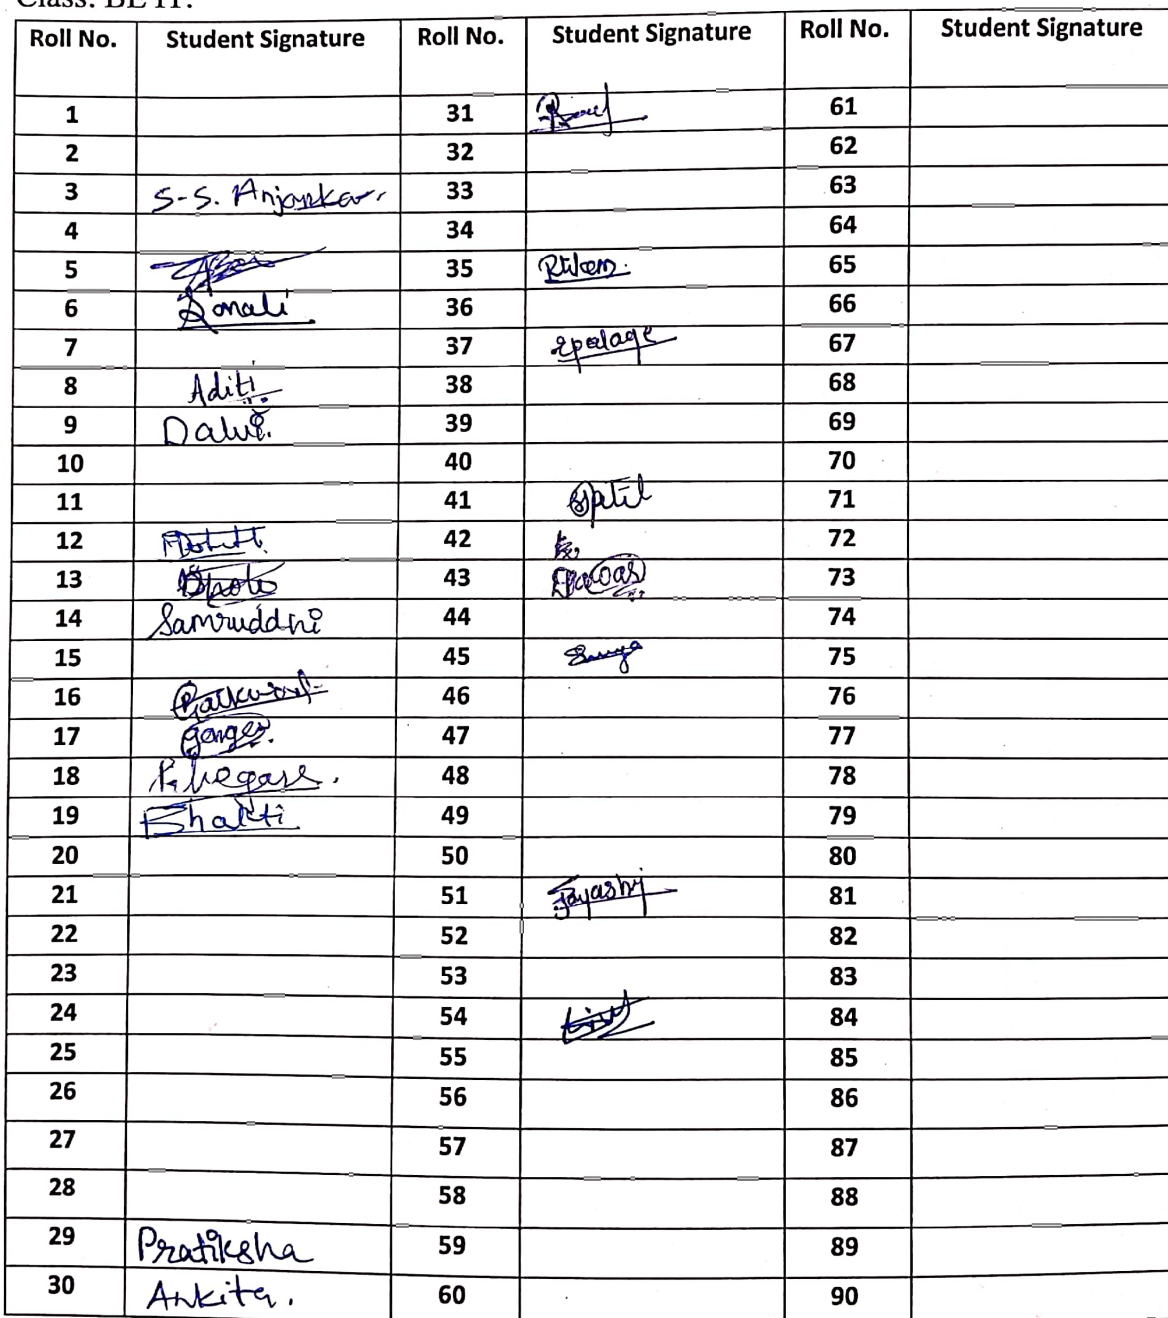 Class: BE IT.
Roll No. Student Signature Roll No. Student Signature Roll No. Student Signature
1 31 61
2 32 62
3 S-S. Anjankar. 33 63
4 34 64
5 35 65
6 Sonali 36 66
7 37 67
8 Aditi 38 68
9 Dalvi. 39 69
10 40 70
11 41 Spatil 71
12 42 72
13 43 73
14 Samruddhi 44 74
15 45 75
16 Gaikwad 46 76
17 47 77
18 48 78
19 Bhakti 49 79
20 50 80
21 51 Jayashri 81
22 52 82
23 53 83
24 54 84
25 55 85
26 56 86
27 57 87
28 58 88
29 Pratiksha 59 89
30 Ankita. 60 90